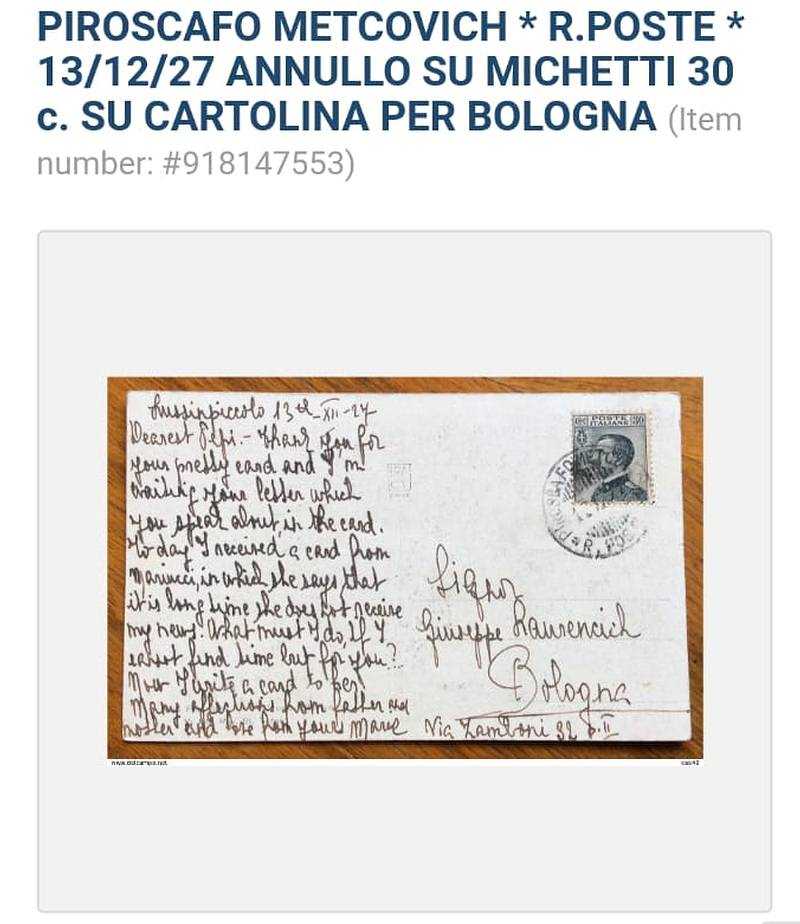 PIROSCAFO METCOVICH * R.POSTE *
13/12/27 ANNULLO SU MICHETTI 30
c. SU CARTOLINA PER BOLOGNA (Item
number: #918147553)
Lussinpiccolo 13th-XII-27
Dearest Pepi.- Thank you for
your pretty card and I'm
waiting your letter which
you speak about, in the card.
To day I received a card from
Mariucci, in which she says, that
it is long time she does not receive
my news. What must I do, if I
cannot find time but for you?
Now I write a card to her.
Many affections from father and
mother and love from your
POSTE
ITALIANE
30
R. POS
Signor
Giuseppe Laurencich
Bologna
Via Zamboni 32 p. II
www.delcampe.net